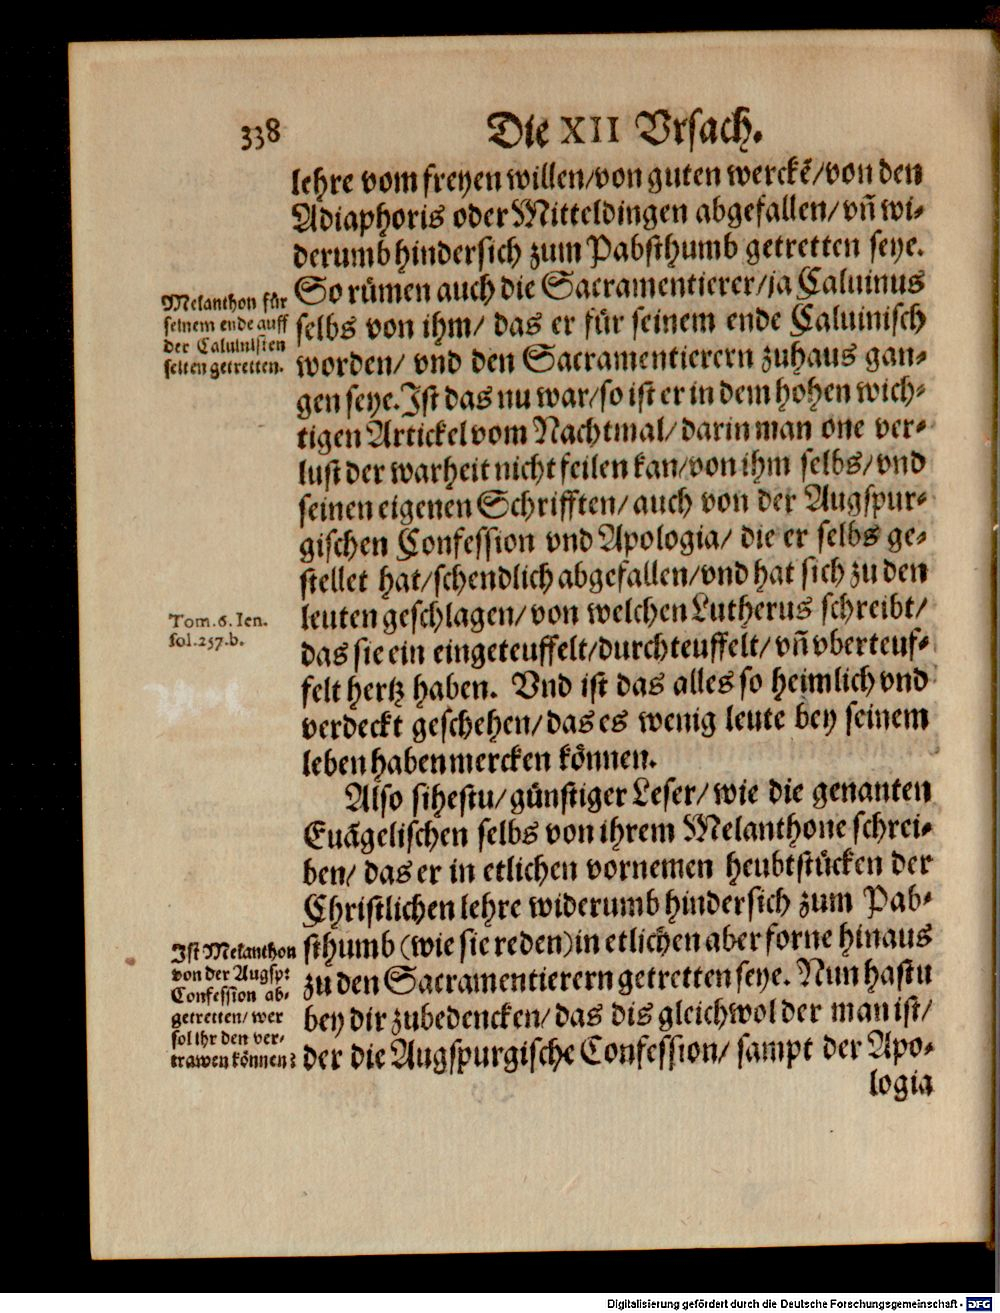 338
Die XII Vrsach.
lehre vom freyen willen/von guten werckẽ/von den
Adiaphoris oder Mitteldingen abgefallen/ vñ wi-
derumb hindersich zum Pabsthumb getretten seye.
So rümen auch die Sacramentierer/ja Caluinus
selbs von ihm/ das er für seinem ende Caluinisch
worden/ vnd den Sacramentierern zuhaus gan-
gen seye. Ist das nu war/so ist er in dem hohen wich-
tigen Artickel vom Nachtmal/ darin man one ver-
lust der warheit nicht feilen kan/von ihm selbs/vnd
seinen eigenen Schrifften/ auch von der Augspur-
gischen Confession vnd Apologia/ die er selbs ge-
stellet hat/schendlich abgefallen/vnd hat sich zu den
leuten geschlagen/ von welchen Lutherus schreibt/
das sie ein eingeteuffelt/durchteuffelt/ vñ vberteuf-
felt hertz haben. Vnd ist das alles so heimlich vnd
verdeckt geschehen/das es wenig leute bey seinem
leben haben mercken können.
Also sihestu/günstiger Leser/ wie die genanten
Euãgelischen selbs von ihrem Melanthone schrei-
ben/ das er in etlichen vornemen heubtstücken der
Christlichen lehre widerumb hindersich zum Pab-
sthumb (wie sie reden) in etlichen aber forne hinaus
zu den Sacramentierern getretten seye. Nun hastu
bey dir zubedencken/das dis gleichwol der man ist/
der die Augspurgische Confession/ sampt der Apo-
logia
Melanthon für
seinem ende auff
der Caluinisten
seiten getretten.
Tom. 6. Ien.
fol. 257. b.
Ist Melanthon
von der Augsp:
Confession ab-
getretten/ wer
sol ihr den ver-
trawen können?
Digitalisierung gefördert durch die Deutsche Forschungsgemeinschaft - DFG